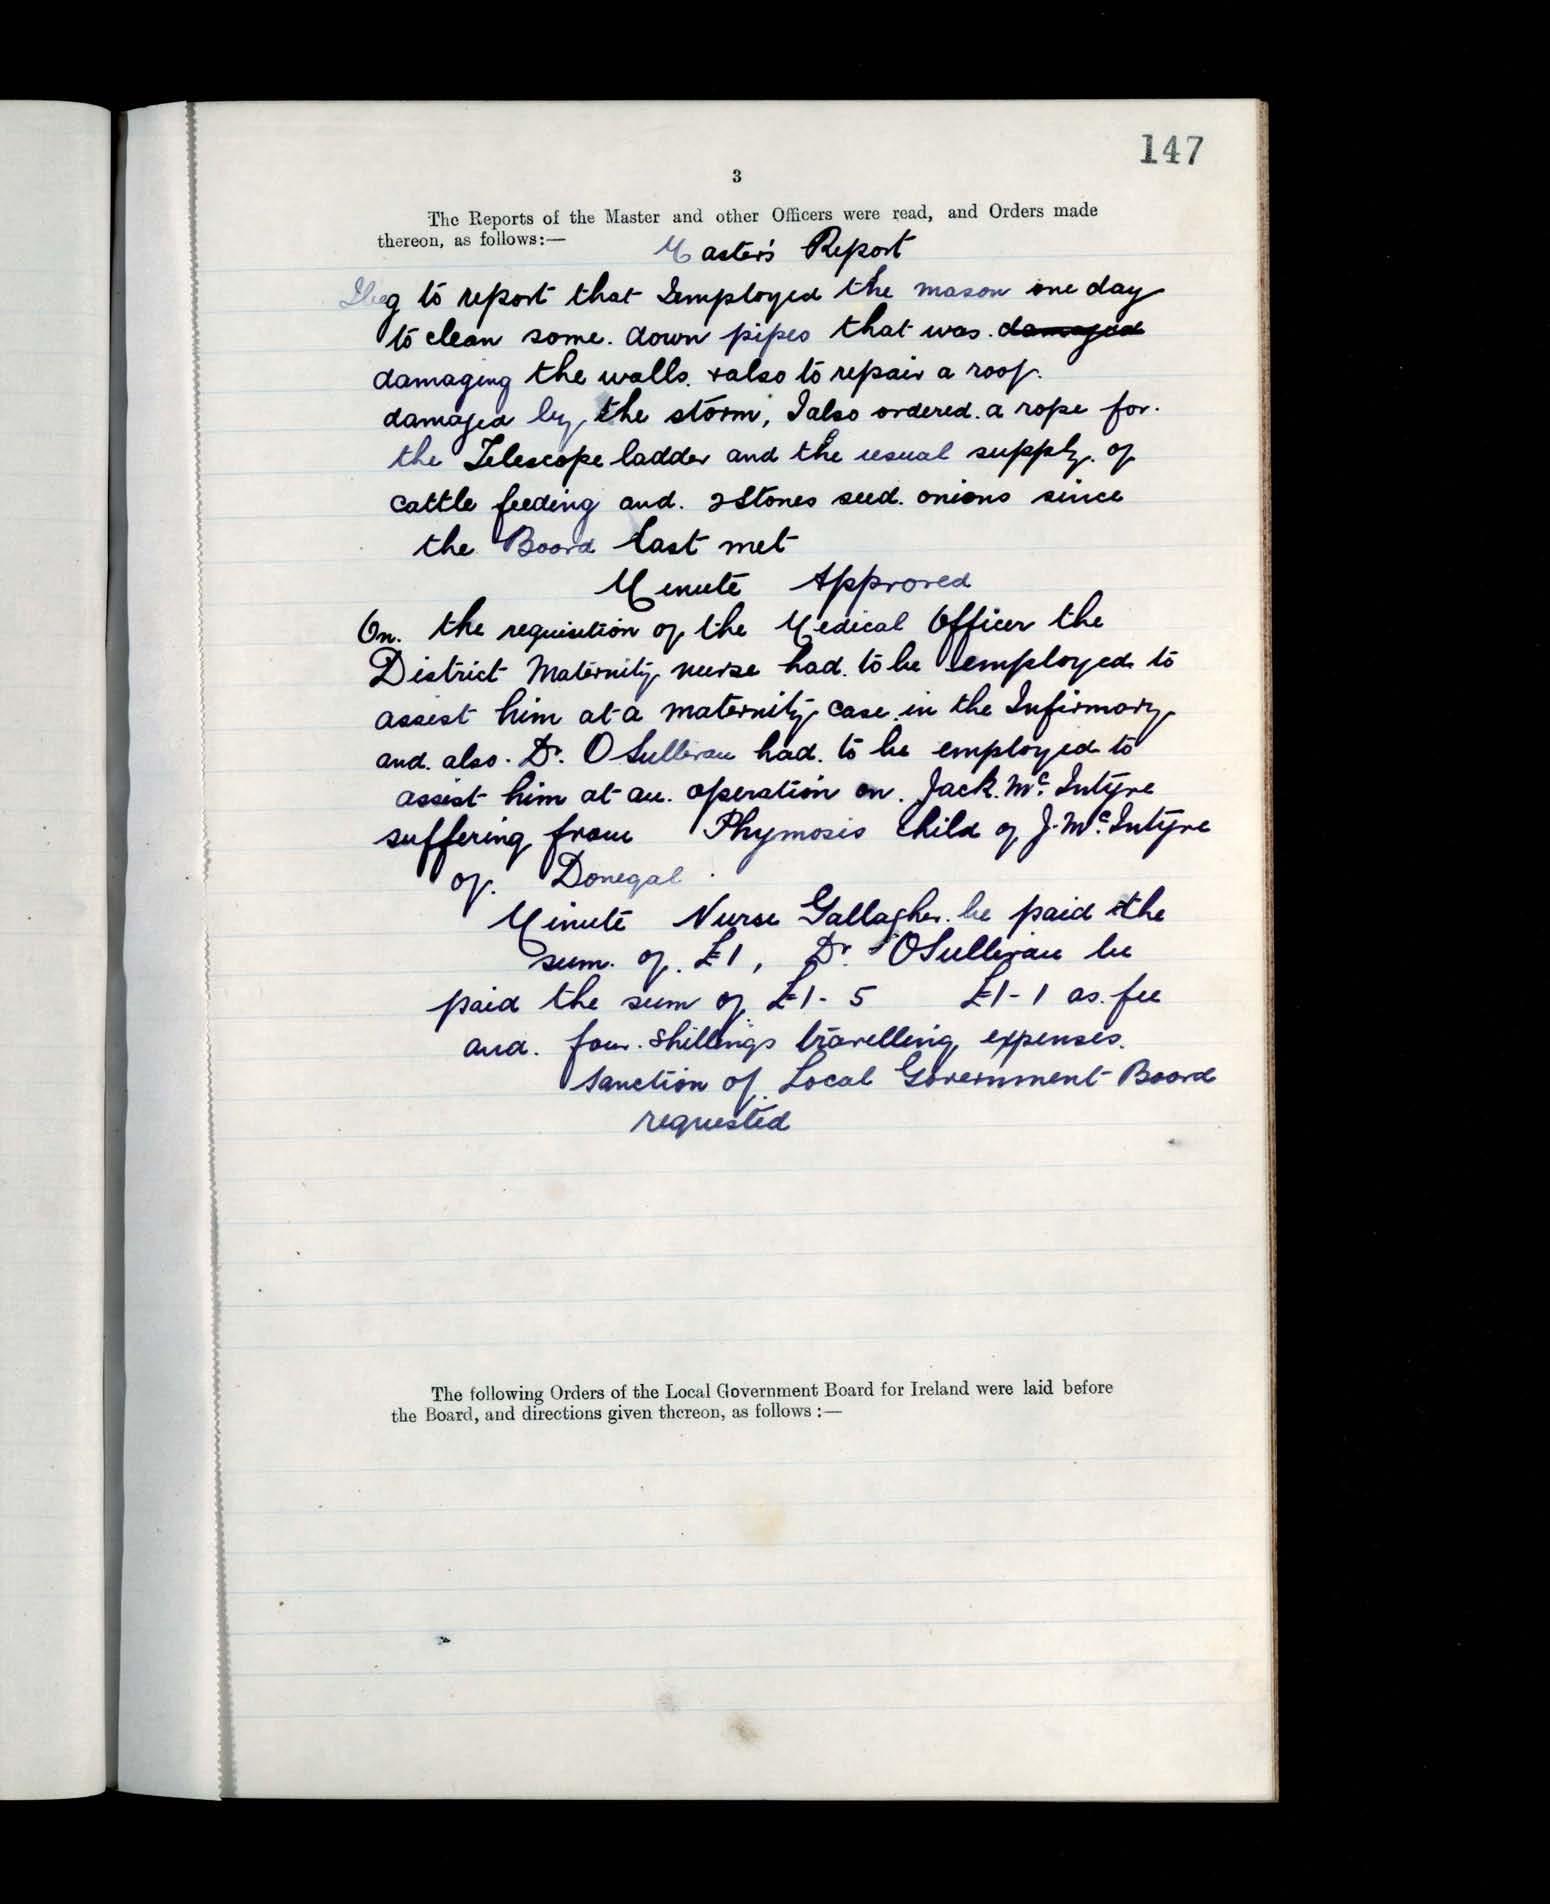 147
3
The Reports of the Master and other Officers were read, and Orders made
thereon, as follows:—
Master's Report
I beg to report that I employed the mason one day
to clean some down pipes that was damaged
damaging the walls. & also to repair a roof.
damaged by the storm, I also ordered a rope for
the Telescope ladder and the usual supply of
cattle feeding and 2 Stones seed onions since
the Board last met
Minute Approved
On the requisition of the Medical Officer the
District Maternity nurse had to be employed to
assist him at a maternity case in the Infirmary
and also Dr. O Sullivan had to be employed to
assist him at an operation on Jack Mc. Intyre
suffering from Phymosis child of J. Mc. Intyre
of Donegal.
Minute Nurse Gallagher be paid the
sum of £1, Dr. O Sullivan be
paid the sum of £1-5 £1-1 as fee
and four shillings travelling expenses.
Sanction of Local Government Board
requested
The following Orders of the Local Government Board for Ireland were laid before
the Board, and directions given thereon, as follows :—